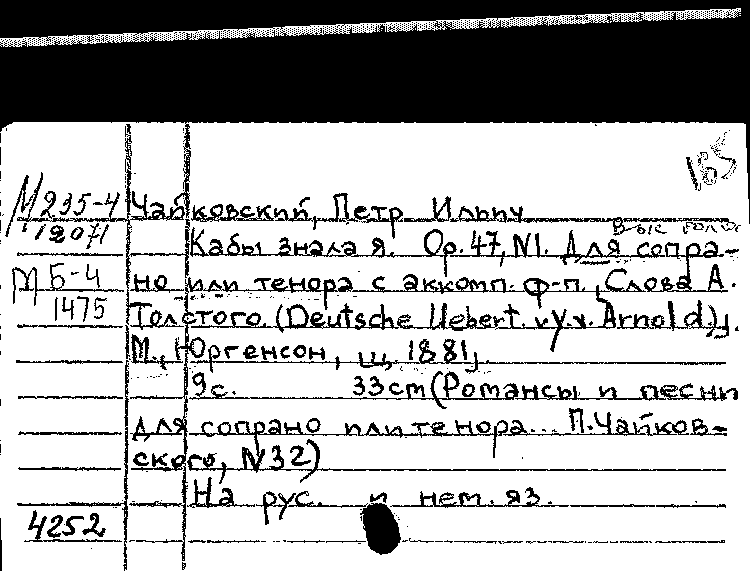 165
М 235-4 Чайковский, Петр Ильич
12071 Кабы знала я. Op. 47, N1. Для сопра-
М Б-4 но или тенора с аккомп. ф-п., Слова А.
1475 Толстого. (Deutsche Uebert. v. Y. v. Arnold).
М., Юргенсон, ц. 1881,
9с. 33cm (Романсы и песни
для сопрано или тенора... П. Чайков-
ского, N32)
На рус. и нем. яз.
4252